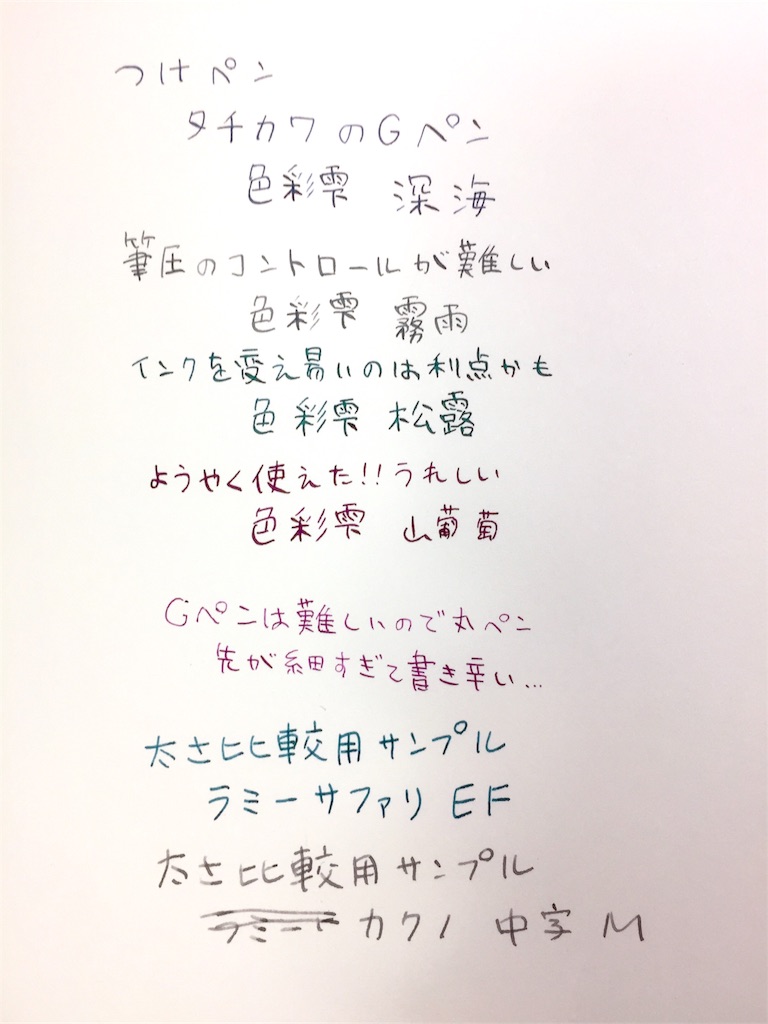 つけペン
タチカワのGペン
色彩雫 深海
筆圧のコントロールが難しい
色彩雫 霧雨
インクを変え易いのは利点かも
色彩雫 松露
ようやく使えた!!うれしい
色彩雫 山葡萄
Gペンは難しいので丸ペン
先が細すぎて書き辛い...
太さ比較用サンプル
ラミーサファリ EF
太さ比較用サンプル
ラミー カクノ 中字 M